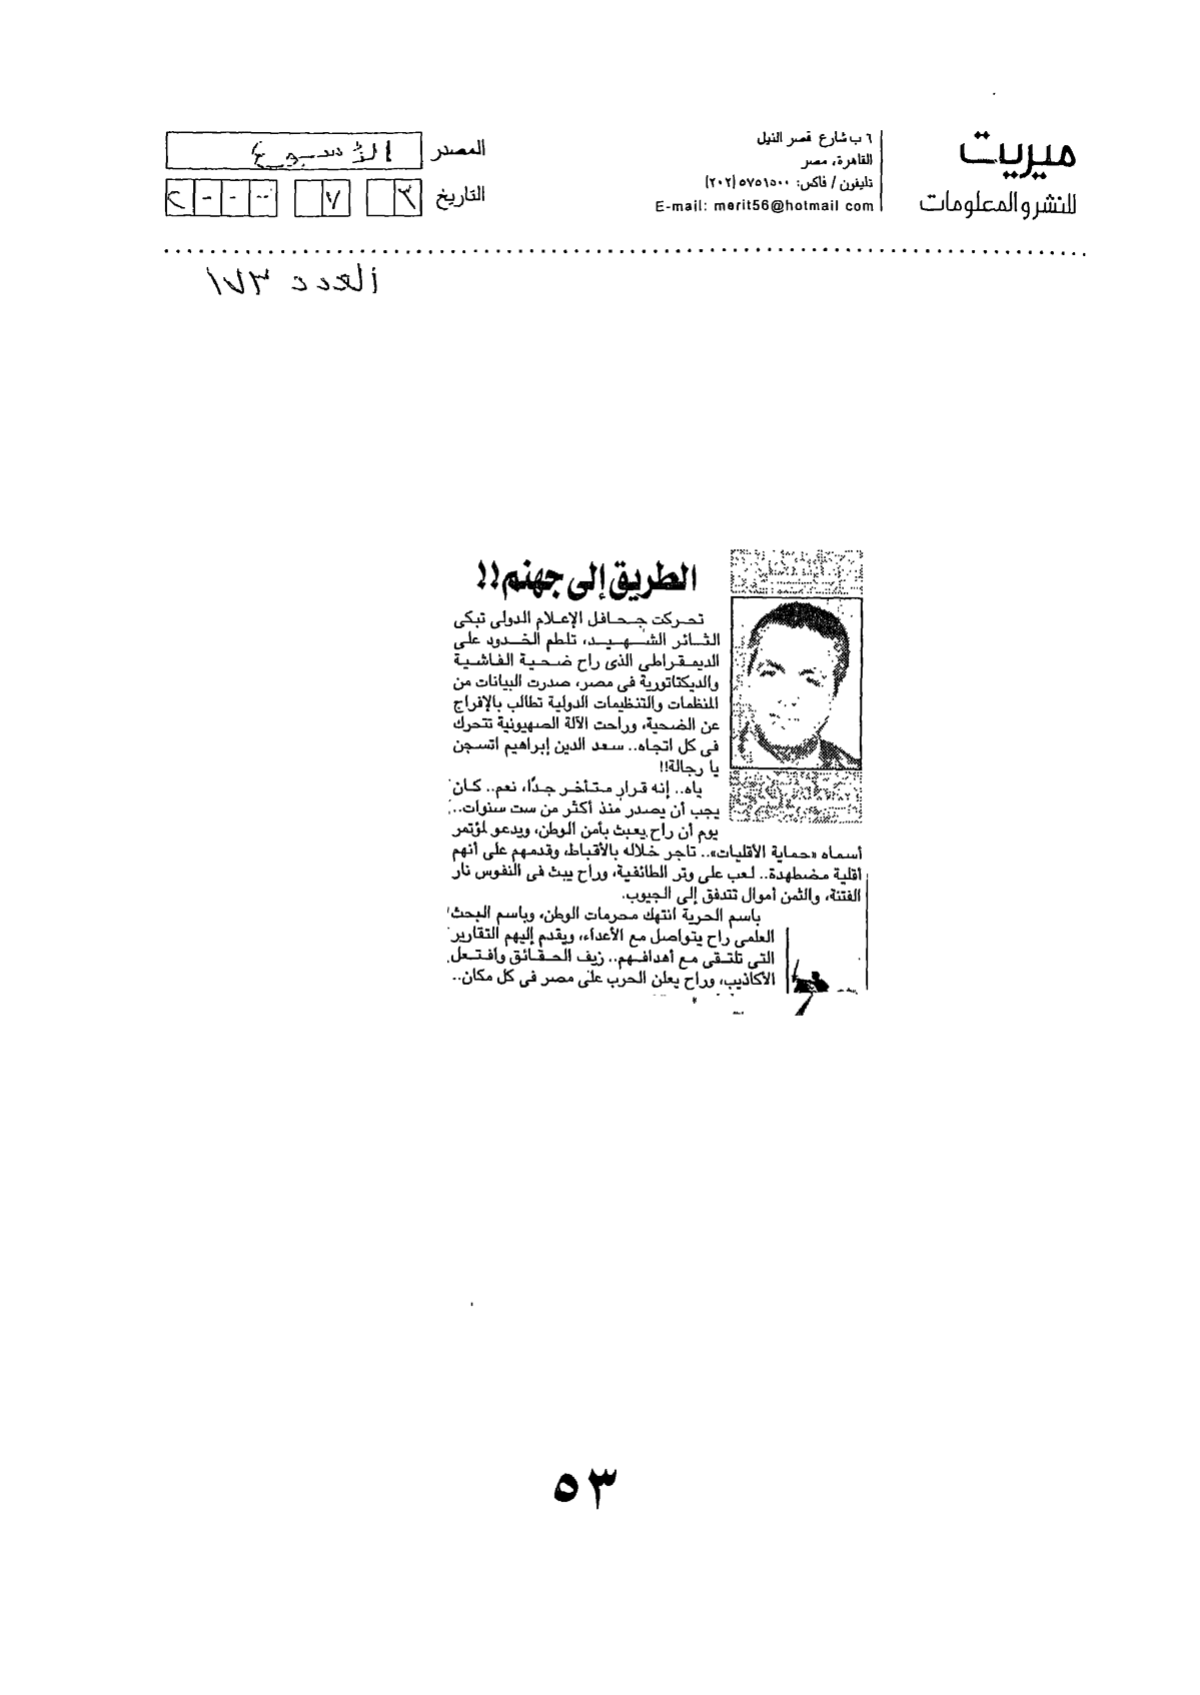 ميريت
للنشر والمعلومات
٦ ب شارع قصر النيل
القاهرة، مصر
تليفون / فاكس: ٥٧٥١٥٠٠ (٢٠٢)
E-mail: merit56@hotmail com
المصدر الأسبوع
التاريخ ٣ ٧ ٢٠٠٠
العدد ١٧٣
الطريق إلى جهنم!!
تحركت جحافل الإعلام الدولى تبكى
الثائر الشهيد، تلطم الخدود على
الديمقراطى الذى راح ضحية الفاشية
والديكتاتورية فى مصر، صدرت البيانات من
المنظمات والتنظيمات الدولية تطالب بالإفراج
عن الضحية، وراحت الآلة الصهيونية تتحرك
فى كل اتجاه.. سعد الدين إبراهيم اتسجن
يا رجالة!!
ياه.. إنه قرار متأخر جدًا، نعم.. كان
يجب أن يصدر منذ أكثر من ست سنوات..
يوم أن راح يعبث بأمن الوطن، ويدعو لمؤتمر
أسماه «حماية الأقليات».. تاجر خلاله بالأقباط، وقدمهم على أنهم
أقلية مضطهدة.. لعب على وتر الطائفية، وراح يبث فى النفوس نار
الفتنة، والثمن أموال تتدفق إلى الجيوب.
باسم الحرية انتهك محرمات الوطن، وباسم البحث
العلمى راح يتواصل مع الأعداء، ويقدم إليهم التقارير
التى تلتقى مع أهدافهم.. زيف الحقائق وافتعل
الأكاذيب، وراح يعلن الحرب على مصر فى كل مكان..
٥٣